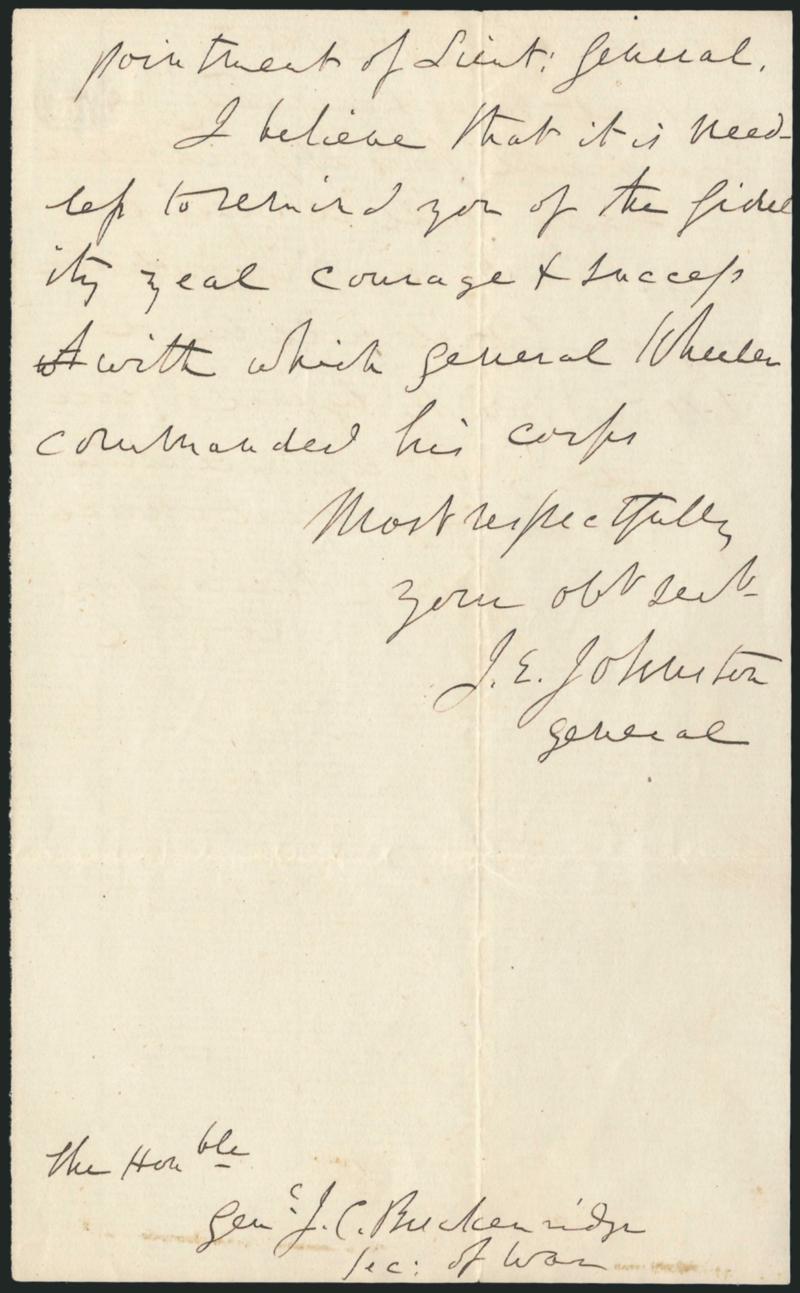 pointment of Lieut: General.
I believe that it is need-
less to remind you of the fidel
ity zeal courage & success
with which General Wheeler
commanded his corps
Most respectfully
your obt servt
J. E. Johnston
General
The Honble
Genl J. C. Breckenridge
Sec: of War